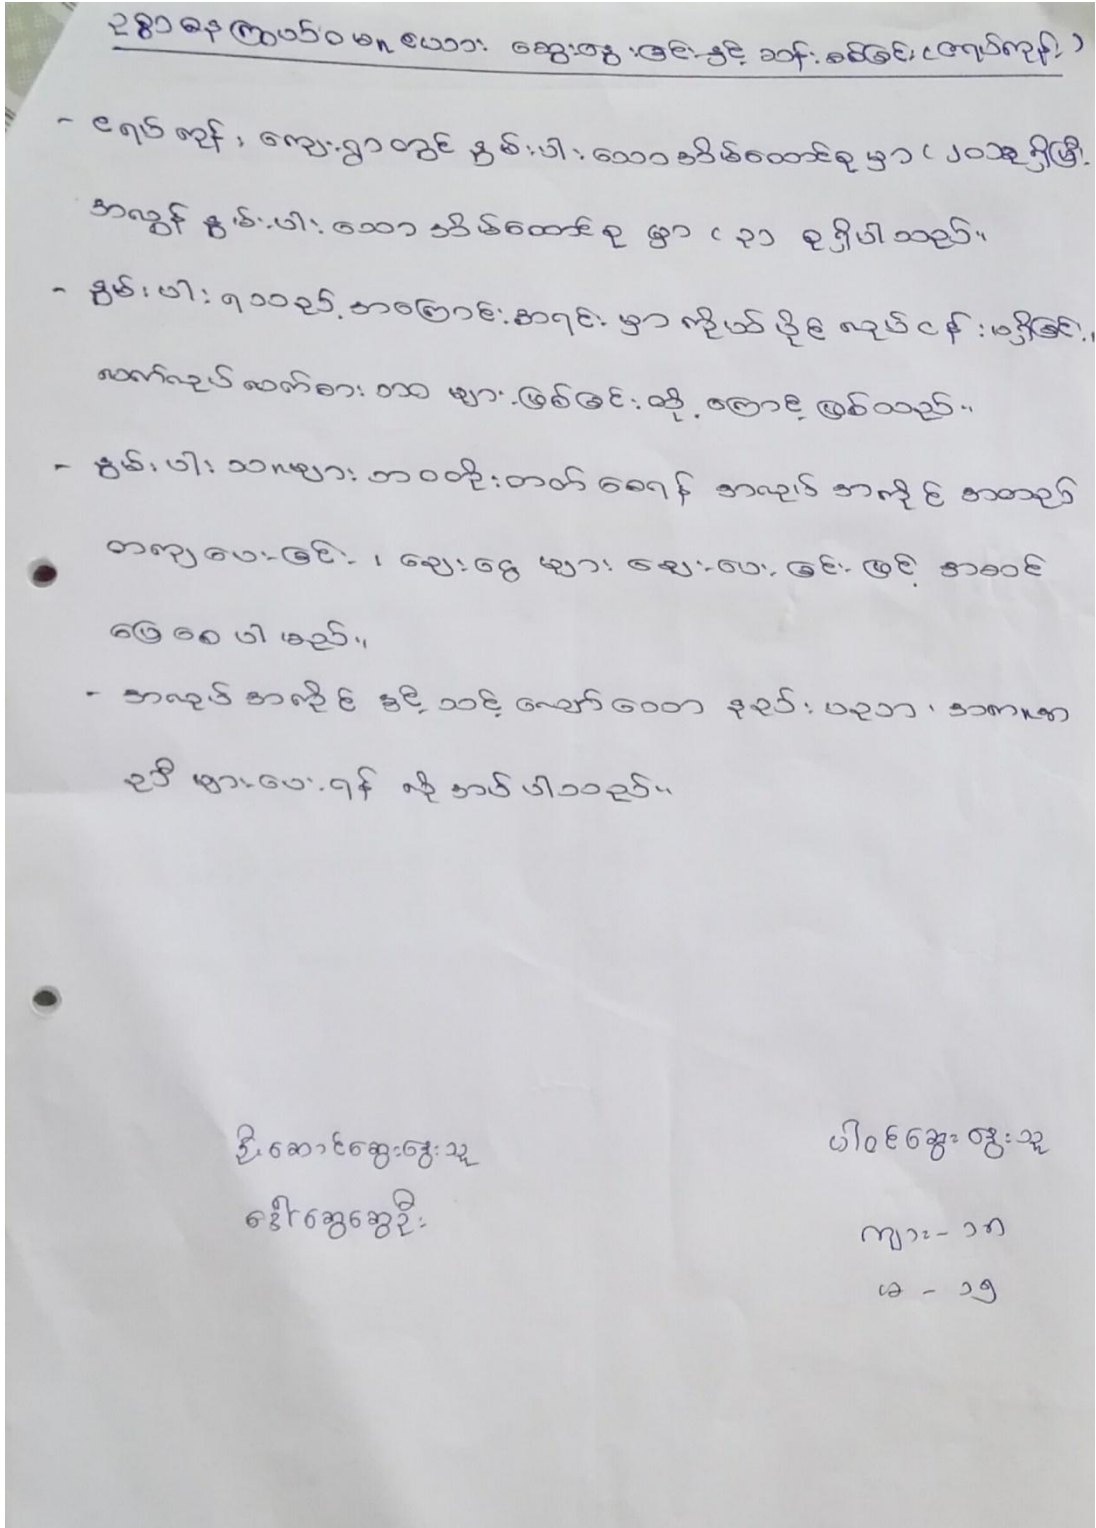 ဥစ္စာဓနကြွယ်ဝမှုအလား ဆွေးနွေးခြင်းနှင့် ဆန်းစစ်ခြင်း (ဇရပ်ကုန်း)
- ဇရပ်ကုန်း ကျေးရွာတွင် နွမ်းပါးသောအိမ်ထောင်စုမှာ (၂၀) စုရှိပြီး
အလွန်နွမ်းပါးသော အိမ်ထောင်စု မှာ (၃) စုရှိပါသည်။
- နွမ်းပါးရသည့်အကြောင်းအရင်းမှာ ကိုယ်ပိုင်လုပ်ငန်းမရှိခြင်း၊
လက်လုပ်လက်စားဘဝများဖြစ်ခြင်းတို့ကြောင့်ဖြစ်သည်။
- နွမ်းပါးသူများဘဝတိုးတက်စေရန် အလုပ်အကိုင်အတည်
တကျပေးခြင်း၊ ချေးငွေများ ချေးပေးခြင်းဖြင့် အဆင်
ပြေစေပါမည်။
- အလုပ်အကိုင်နှင့်သင့်လျော်သော နည်းပညာ၊ အကူအ
ညီများပေးရန် လိုအပ်ပါသည်။
ဦးဆောင်ဆွေးနွေးသူ
ဒေါ်ဆွေဆွေဦး
ပါဝင်ဆွေးနွေးသူ
ကျား - ၁၈
မ - ၁၅